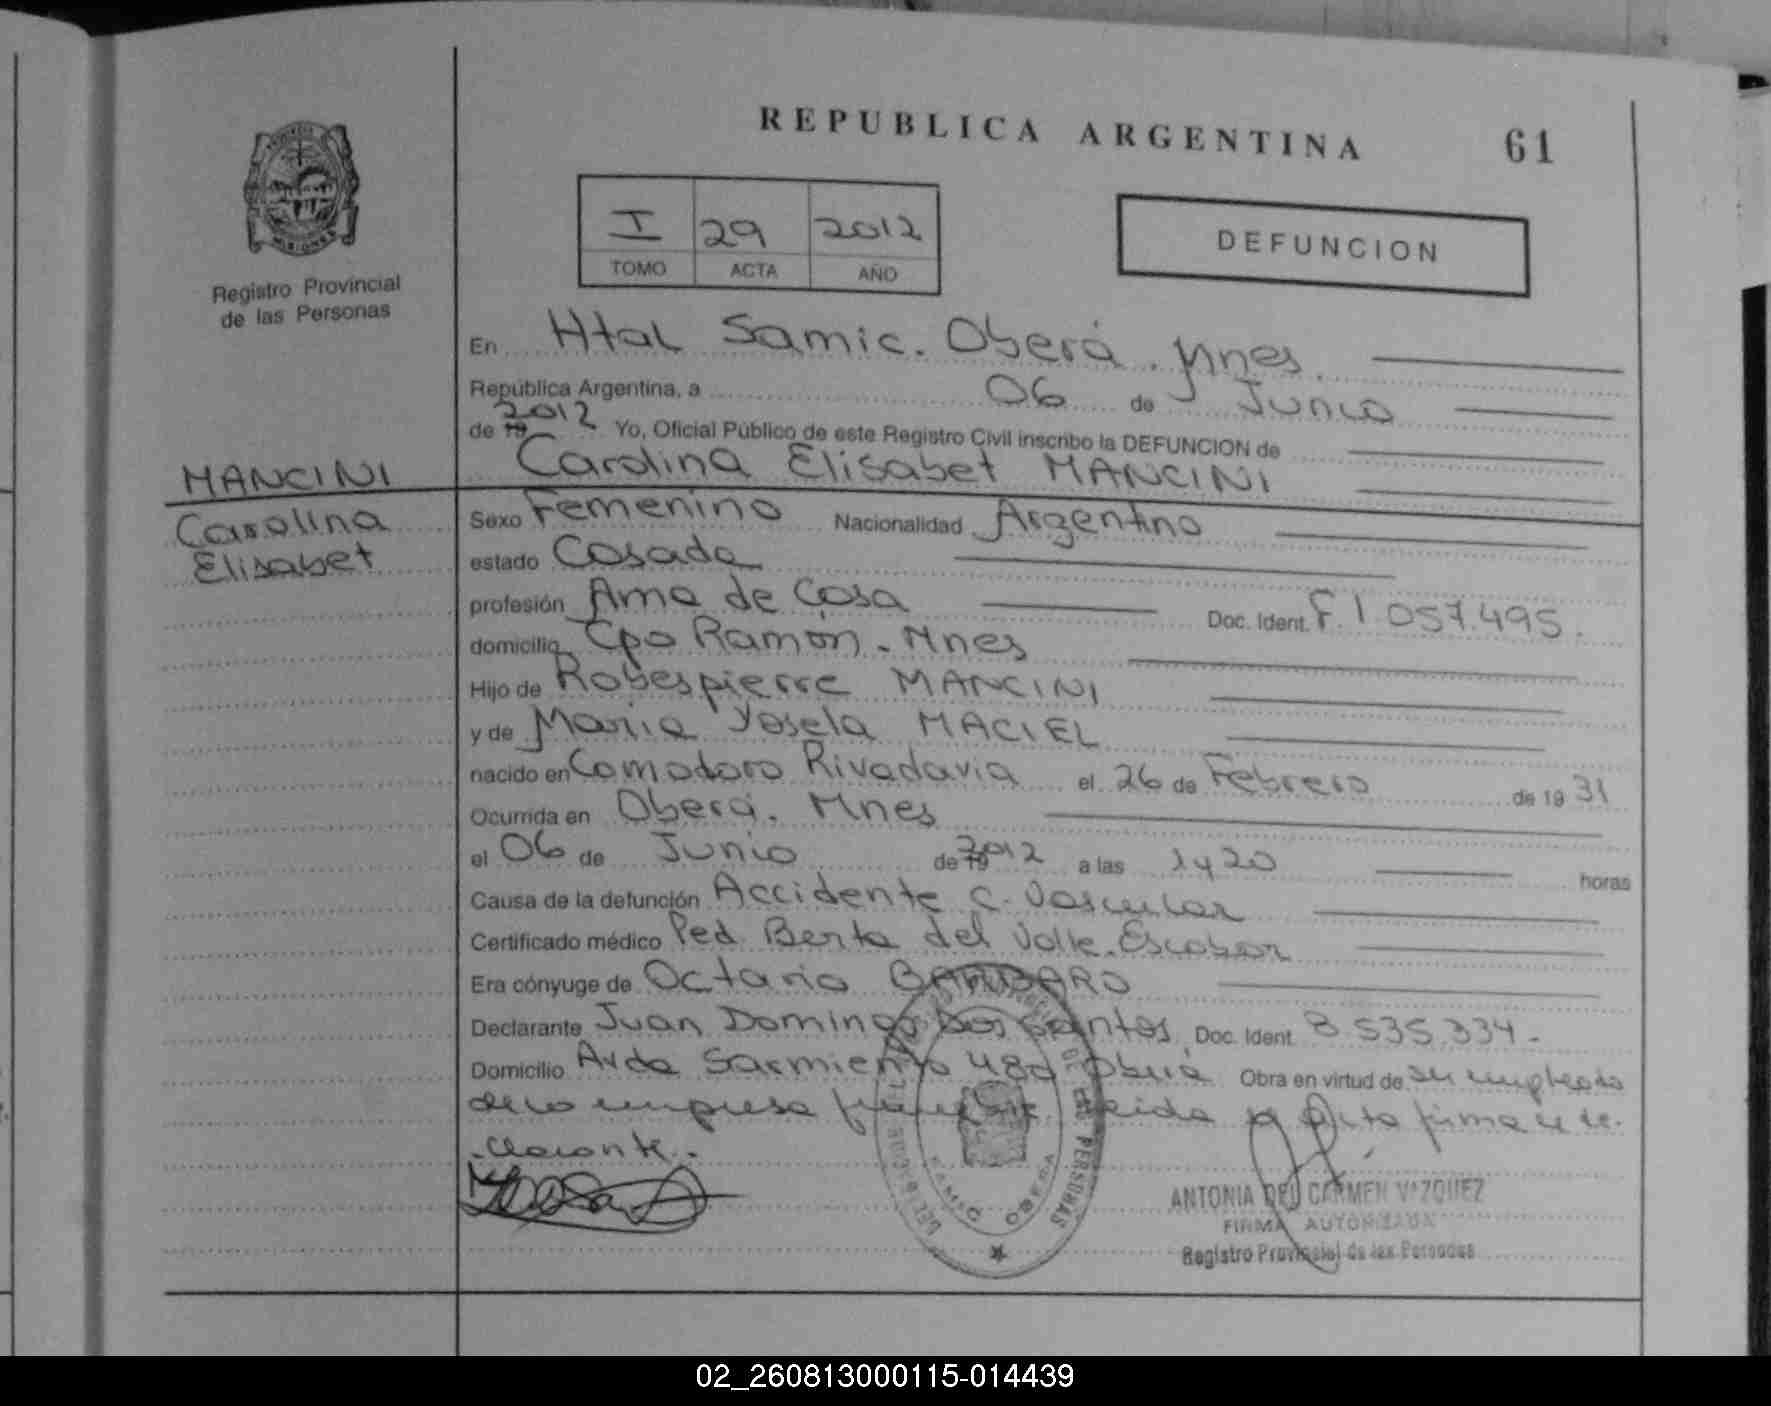 REPUBLICA ARGENTINA
61
I 29 2012
TOMO ACTA AÑO
DEFUNCION
MISIONES
Registro Provincial
de las Personas
MANCINI
Carolina
Elisabet
En Htal Samic. Oberá. Mnes.
República Argentina, a 06 de Junio
de 19 2012 Yo, Oficial Público de este Registro Civil inscribo la DEFUNCION de
Carolina Elisabet MANCINI
Sexo Femenino Nacionalidad Argentino
estado Casada
profesión Ama de Casa Doc. Ident. F. 1.057.495.
domicilio Cpo Ramón. Mnes
Hijo de Robespierre MANCINI
y de Maria Yosela MACIEL
nacido en Comodoro Rivadavia el 26 de Febrero de 19 31
Ocurrida en Oberá. Mnes
el 06 de Junio de 19 2012 a las 1420 horas
Causa de la defunción Accidente C. Vascular
Certificado médico Ped Berta del Valle Escobar
Era cónyuge de Octavio BARBARO
Declarante Juan Domingo Dos Santos Doc. Ident 8.535.334.-
Domicilio Avda Sarmiento 480 Oberá Obra en virtud de ser empleado
de la empresa leida el acta firma el de-
clarante.
DE PERSONAS
SAMIC OBERA
ANTONIA DEL CARMEN VAZQUEZ
FIRMA AUTORIZADA
Registro Provincial de las Personas
02_260813000115-014439